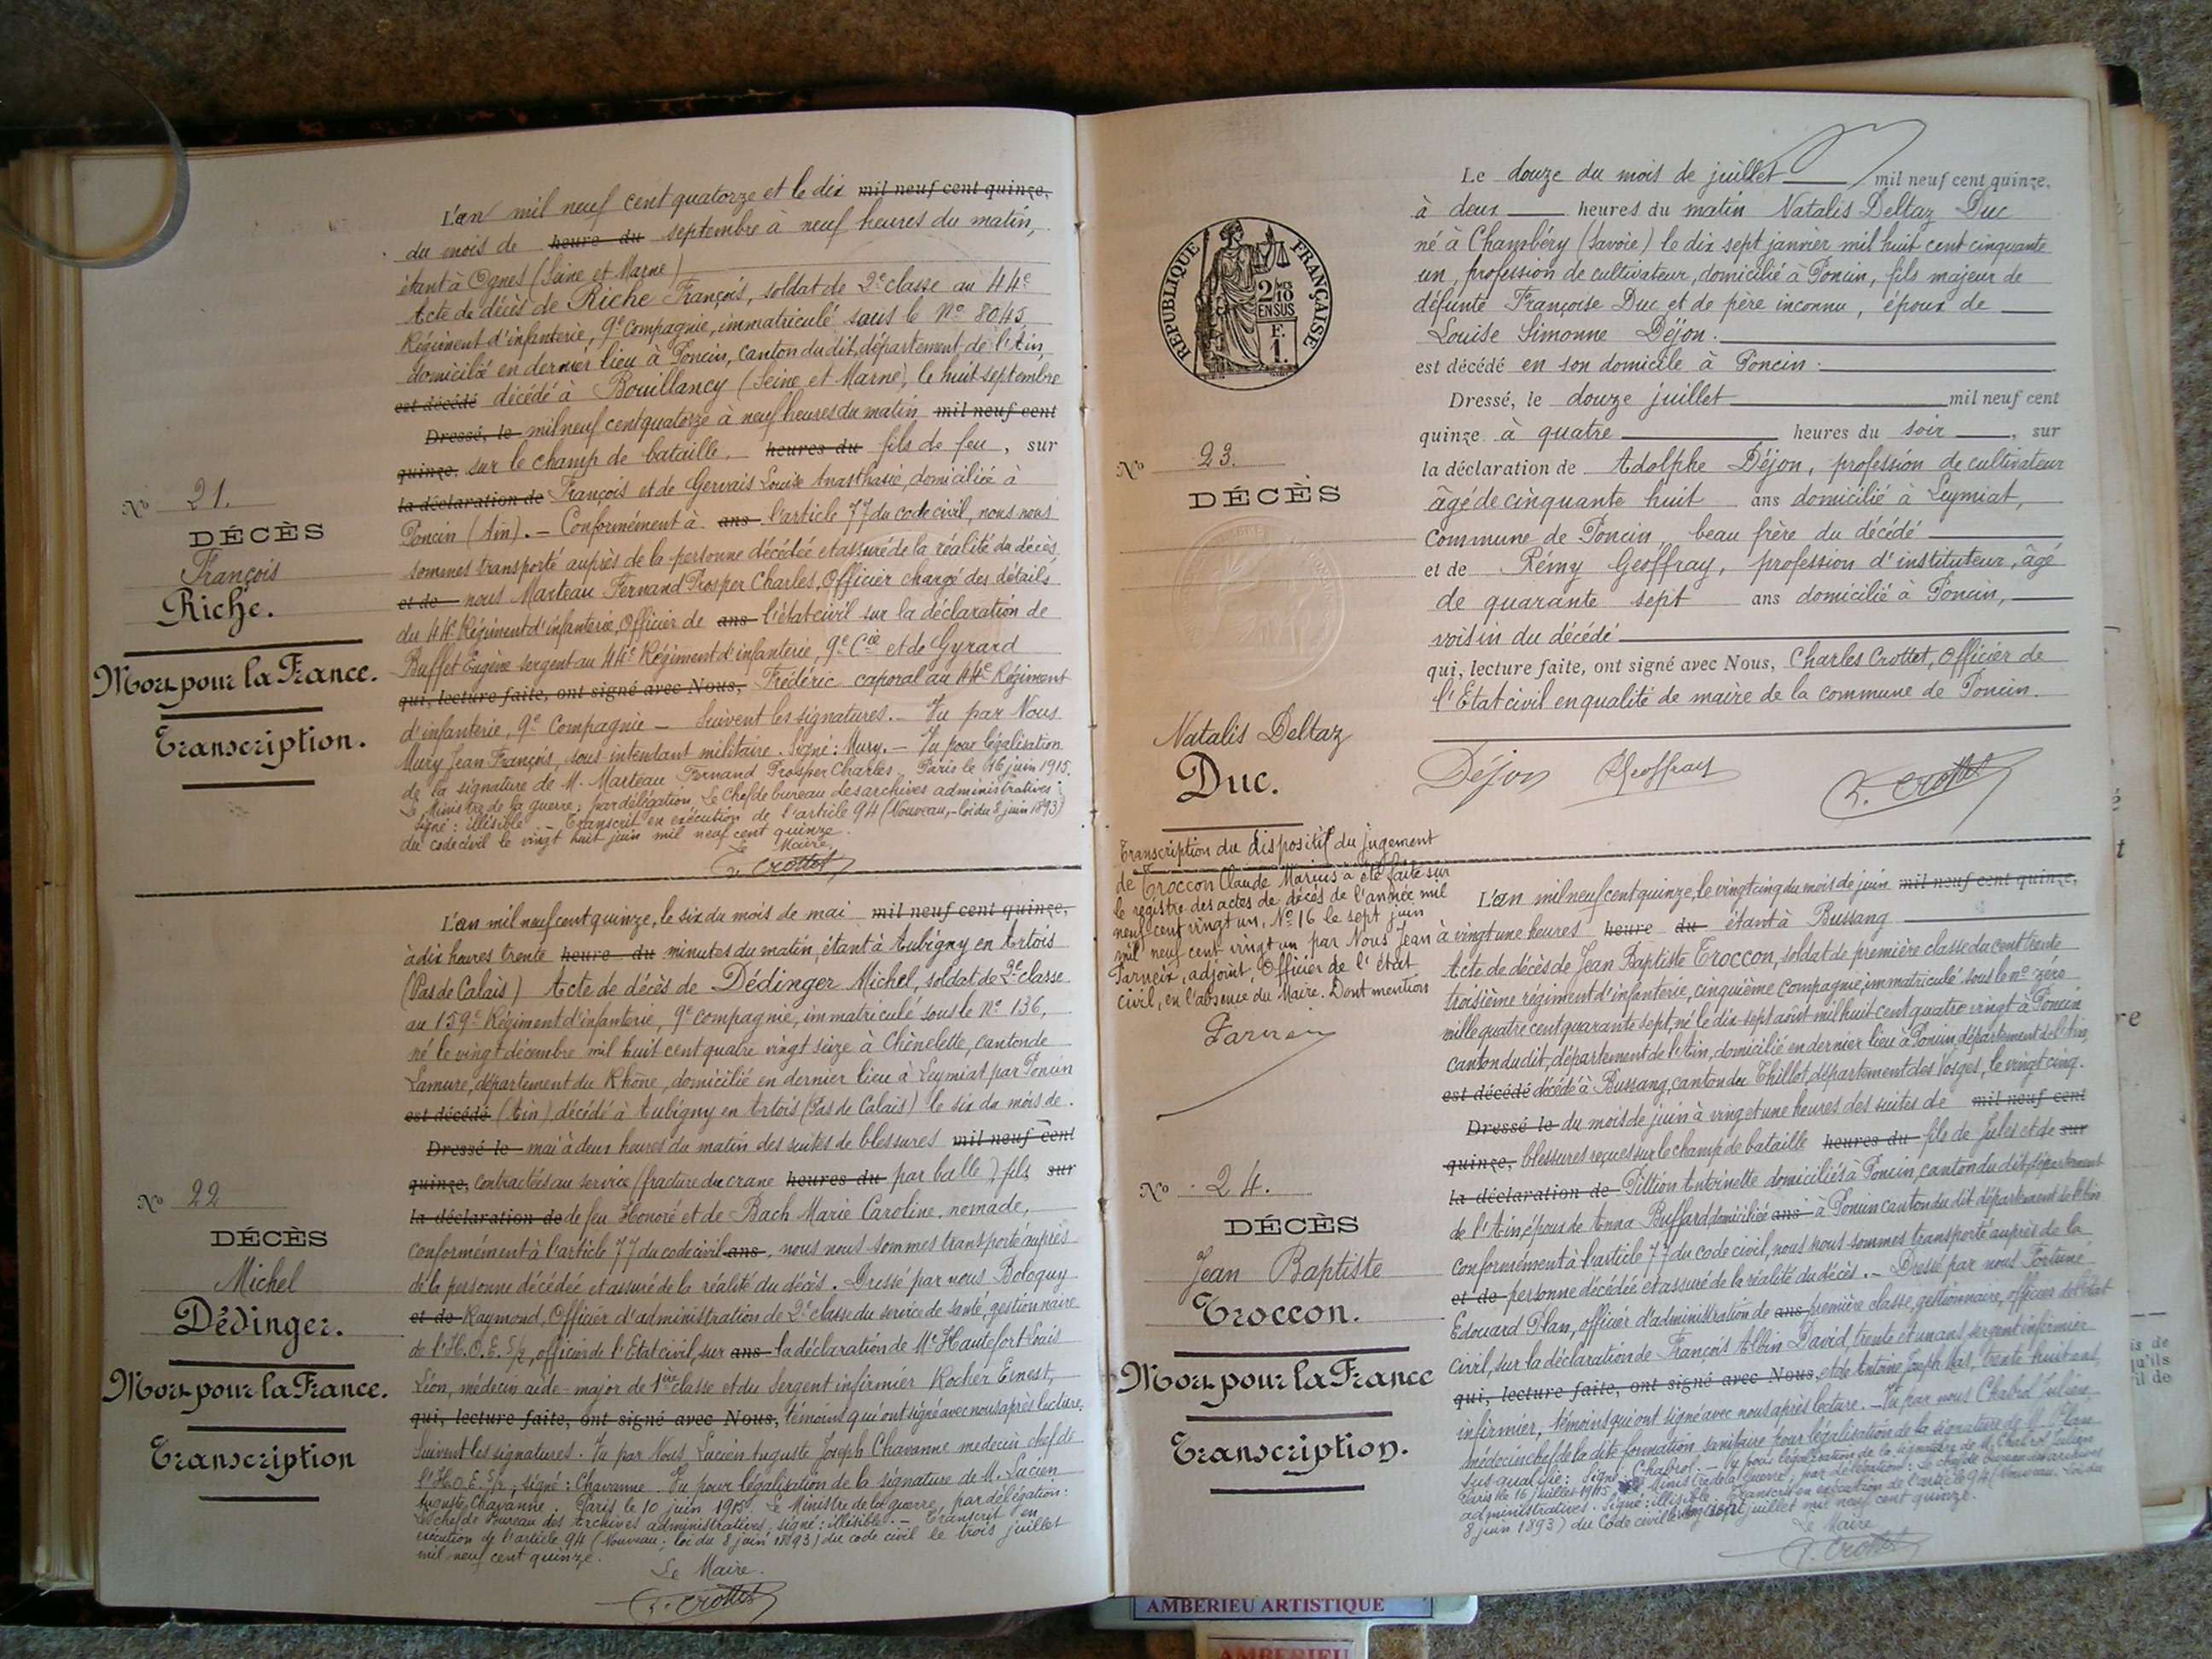 L'an mil neuf cent quatorze et le dix mil neuf cent quinze,
du mois de heure du septembre à neuf heures du matin,
étant à Ognes (Seine et Marne)
Acte de décès de Riche François, soldat de 2e classe au 44e
Régiment d'infanterie, 9e compagnie, immatriculé sous le No 8045
domicilié en dernier lieu à Poncin, canton du dit, département de l'Ain,
est décédé décédé à Bouillancy (Seine et Marne), le huit septembre
Dressé, le mil neuf cent quatorze à neuf heures du matin mil neuf cent
quinze, sur le champ de bataille. heures du fils de feu, sur
la déclaration de François et de Gervais Louise Anasthasie, domiciliée à
Poncin (Ain). - Conformément à ans l'article 77 du code civil, nous nous
sommes transporté auprès de la personne décédée et assuré de la réalité du décès
et de nous Marteau Fernand Prosper Charles, Officier chargé des détails
du 44e Régiment d'infanterie, Officier de ans l'état civil sur la déclaration de
Buffet Eugène sergent au 44e Régiment d'infanterie, 9e Cie et de Gyrard
qui, lecture faite, ont signé avec Nous, Frédéric caporal au 44e Régiment
d'infanterie, 9e Compagnie - Suivent les signatures. - Vu par Nous
Mury Jean François, sous intendant militaire. Signé: Mury. - Vu pour légalisation
de la signature de M. Marteau Fernand Prosper Charles. Paris le 16 juin 1915.
Le Ministre de la guerre; par délégation, Le Chef de bureau des archives administratives
signé: illisible. - Transcrit en exécution de l'article 94 (Nouveau, - loi du 8 juin 1893)
du code civil le vingt huit juin mil neuf cent quinze.
Le Maire,
Crottet
No 21.
DÉCÈS
François
Riche.
Mort pour la France.
Transcription.
L'an mil neuf cent quinze, le six du mois de mai mil neuf cent quinze,
à dix heures trente heure du minutes du matin, étant à Aubigny en Artois
(Pas de Calais) Acte de décès de Dédinger Michel, soldat de 2e classe
au 159e Régiment d'infanterie, 9e compagnie, immatriculé sous le No 136,
né le vingt décembre mil huit cent quatre vingt seize à Chènelette, canton de
Lamure, département du Rhône, domicilié en dernier lieu à Leymiat par Poncin
est décédé (Ain) décédé à Aubigny en Artois (Pas de Calais) le six du mois de
Dressé le mai à deux heures du matin des suites de blessures mil neuf cent
quinze, contractées au service (fracture du crane heures du par balle), fils sur
la déclaration de de feu Honoré et de Bach Marie Caroline, nomade,
conformément à l'article 77 du code civil ans, nous nous sommes transporté auprès
de la personne décédée et assuré de la réalité du décès. Dressé par nous Bologuy
et de Raymond, Officier d'administration de 2e classe du service de santé, gestionnaire
de l'H.O.E. 5/2, officier de l'Etat civil, sur ans la déclaration de Mr Hautefort Louis
Léon, médecin aide-major de 1ière classe et du Sergent infirmier Rocher Ernest,
qui, lecture faite, ont signé avec Nous, témoins qui ont signé avec nous après lecture.
Suivent les signatures. Vu par Nous Lucien Auguste Joseph Chavanne médecin chef de
l'H.O.E. 5/2, signé: Chavanne. Vu pour légalisation de la signature de M. Lucien
Auguste Chavanne. Paris le 10 juin 1915. Le Ministre de la guerre, par délégation:
Le chef de Bureau des Archives administratives, signé: illisible. - Transcrit en
exécution de l'article 94 (Nouveau; loi du 8 juin 1893) du code civil le trois juillet
mil neuf cent quinze.
Le Maire.
Crottet
No 22
DÉCÈS
Michel
Dédinger.
Mort pour la France.
Transcription
RÉPUBLIQUE FRANÇAISE
2/10 EN SUS
F. 1.
No 23.
DÉCÈS
Natalis Deltaz
Duc.
Le douze du mois de juillet mil neuf cent quinze,
à deux heures du matin Natalis Deltaz Duc
né à Chambéry (Savoie) le dix sept janvier mil huit cent cinquante
un, profession de cultivateur, domicilié à Poncin, fils majeur de
défunte Françoise Duc et de père inconnu, époux de
Louise Simonne Déjon.
est décédé en son domicile à Poncin.
Dressé, le douze juillet mil neuf cent
quinze à quatre heures du soir, sur
la déclaration de Adolphe Déjon, profession de cultivateur
âgé de cinquante huit ans domicilié à Leymiat,
commune de Poncin, beau frère du décédé
et de Rémy Geoffray, profession d'instituteur, âgé
de quarante sept ans domicilié à Poncin,
voisin du décédé
qui, lecture faite, ont signé avec Nous, Charles Crottet, Officier de
l'Etat civil en qualité de maire de la commune de Poncin.
Déjon Geoffray Crottet
Transcription du dispositif du jugement
de Troccon Claude Marius a été faite sur
le registre des actes de décès de l'année mil
neuf cent vingt un, No 16 le sept juin
mil neuf cent vingt un par Nous Jean
Parneix, adjoint Officier de l'état
civil, en l'absence du Maire. Dont mention
Parneix
No 24.
DÉCÈS
Jean Baptiste
Troccon.
Mort pour la France
Transcription.
L'an mil neuf cent quinze, le vingt cinq du mois de juin mil neuf cent quinze,
à vingt une heures heure du étant à Bussang
Acte de décès de Jean Baptiste Troccon, soldat de première classe du cent trente
troisième régiment d'infanterie, cinquième compagnie, immatriculé sous le no zéro
mille quatre cent quarante sept, né le dix sept août mil huit cent quatre vingt à Poncin
canton du dit, département de l'Ain, domicilié en dernier lieu à Poncin, département de l'Ain,
est décédé décédé à Bussang, canton du Thillot, département des Vosges, le vingt cinq
Dressé le du mois de juin à vingt et une heures des suites de mil neuf cent
quinze, blessures reçues sur le champ de bataille heures du fils de Jules et de sur
la déclaration de Pittion Antoinette domiciliés à Poncin, canton du dit, département
de l'Ain époux de Anna Buffard, domiciliée ans à Poncin canton du dit département de l'Ain
conformément à l'article 77 du code civil, nous nous sommes transporté auprès de la
et de personne décédée et assuré de la réalité du décès. - Dressé par nous Fortuné
Edouard Plan, officier d'administration de ans première classe, gestionnaire, officier de l'état
civil, sur la déclaration de François Albin David, trente et un ans, sergent infirmier
qui, lecture faite, ont signé avec Nous, et de Antoine Joseph Mas, trente huit ans,
infirmier, témoins qui ont signé avec nous après lecture. - Vu par nous Chabrol Julien,
médecin chef de la dite formation sanitaire pour légalisation de la signature de M. Plan
sus qualifié: signé: Chabrol. - Vu pour légalisation de la signature de M. Chabrol Julien
Paris le 16 juillet 1915 Le Ministre de la Guerre, par délégation: Le chef de bureau des archives
administratives. Signé: illisible. Transcrit en exécution de l'article 94 (Nouveau. Loi du
8 juin 1893) du Code civil le vingt sept juillet mil neuf cent quinze.
Le Maire
Crottet
AMBERIEU ARTISTIQUE
AMBERIEU